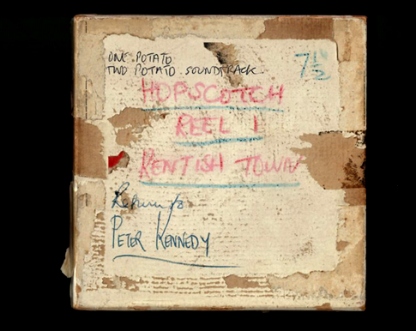 ONE POTATO
TWO POTATO SOUNDTRACK
7½"
HOPSCOTCH
REEL 1
KENTISH TOWN
Return to
PETER KENNEDY